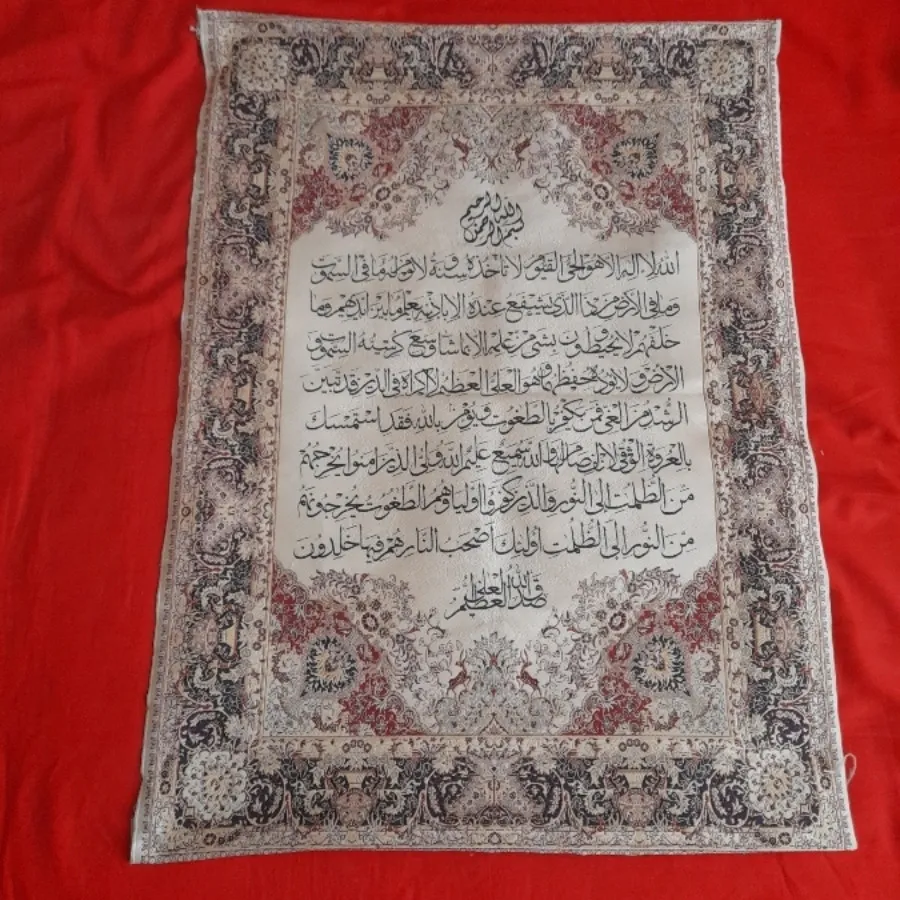 بسم الله الرحمن الرحيم
الله لا اله الا هو الحي القيوم لا تاخذه سنة ولا نوم له ما في السموت
وما في الارض من ذا الذي يشفع عنده الا باذنه يعلم ما بين ايديهم وما
خلفهم ولا يحيطون بشيء من علمه الا بما شاء وسع كرسيه السموت
والارض ولا يوده حفظهما وهو العلي العظيم لا اكراه في الدين قد تبين
الرشد من الغي فمن يكفر بالطغوت ويؤمن بالله فقد استمسك
بالعروة الوثقى لا انفصام لها والله سميع عليم الله ولي الذين امنوا يخرجهم
من الظلمت الى النور والذين كفروا اولياؤهم الطغوت يخرجونهم
من النور الى الظلمت اولئك اصحب النار هم فيها خلدون
صدق الله العلي العظيم